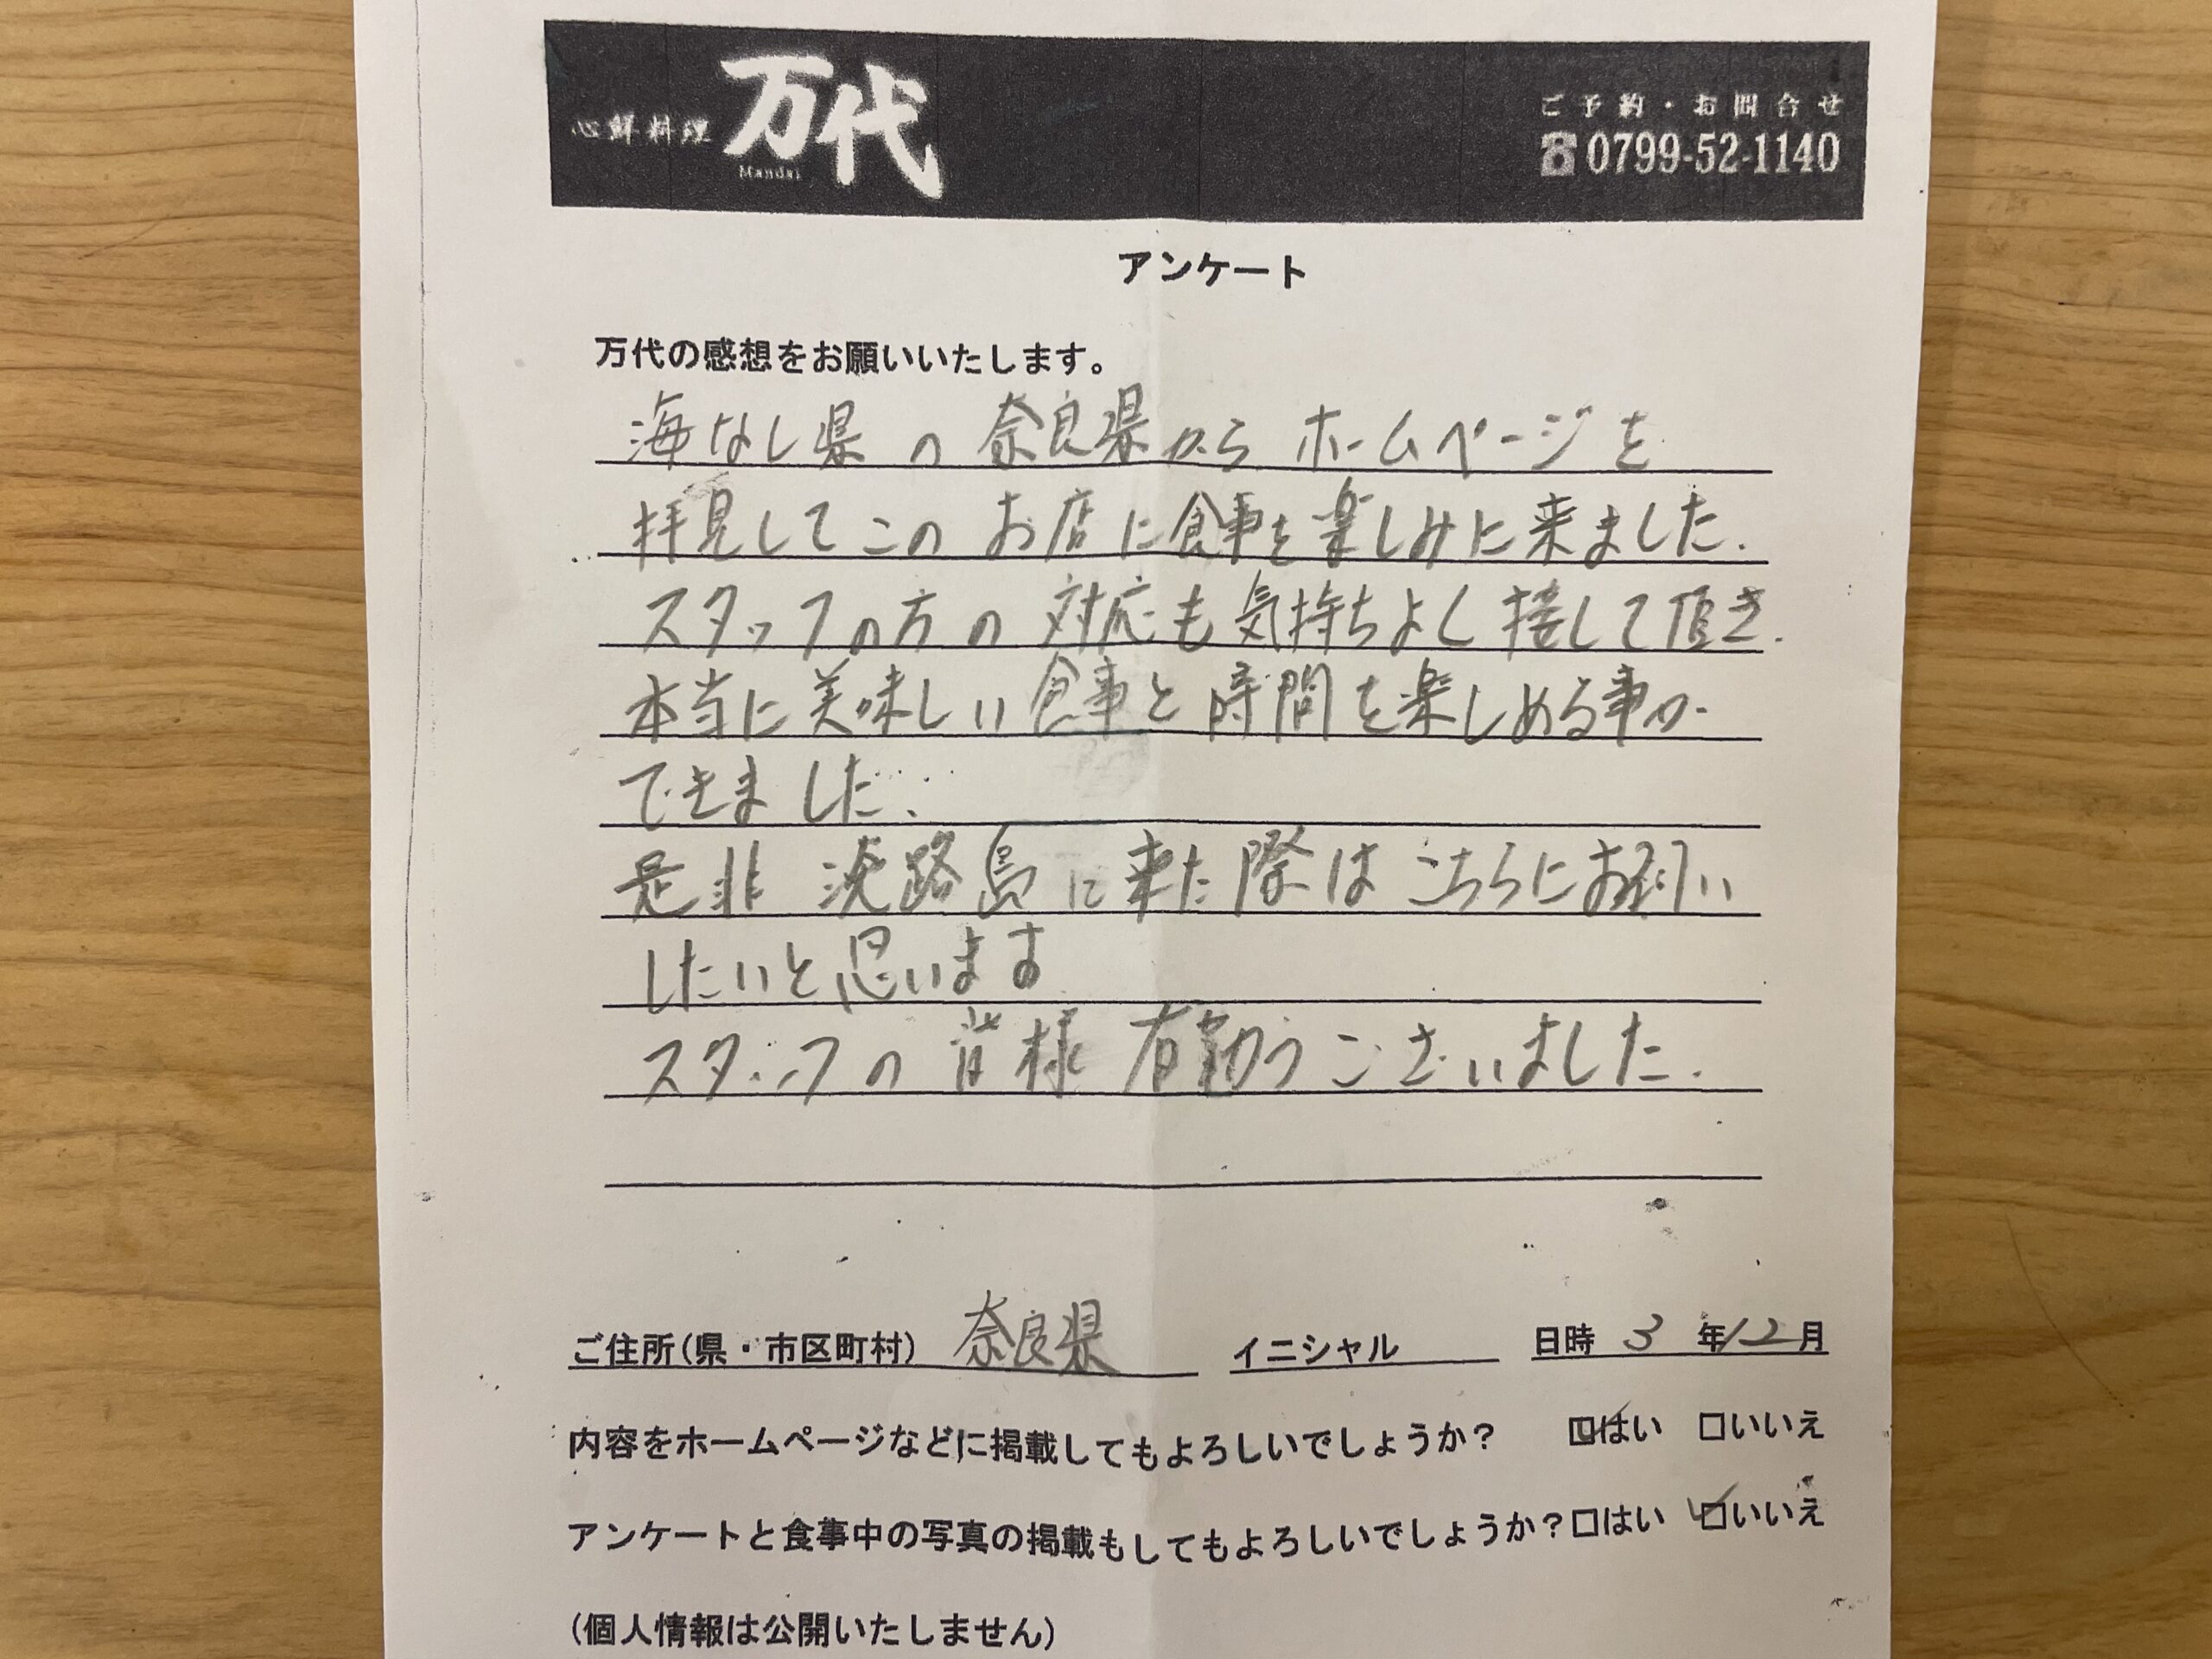 心鮮料理 万代
Mandai
ご予約・お問合せ
☎0799-52-1140
アンケート
万代の感想をお願いいたします。
海なし県の奈良県からホームページを
拝見してこのお店に食事を楽しみに来ました.
スタッフの方の対応も気持ちよく接して頂き.
本当に美味しい食事と時間を楽しめる事が
できました.
是非 淡路島に来た際はこちらにお伺い
したいと思います
スタッフの皆様 有難うございました.
ご住所(県・市区町村) 奈良県 イニシャル 日時 3 年12月
内容をホームページなどに掲載してもよろしいでしょうか? ☑はい □いいえ
アンケートと食事中の写真の掲載もしてもよろしいでしょうか?□はい ☑いいえ
(個人情報は公開いたしません)